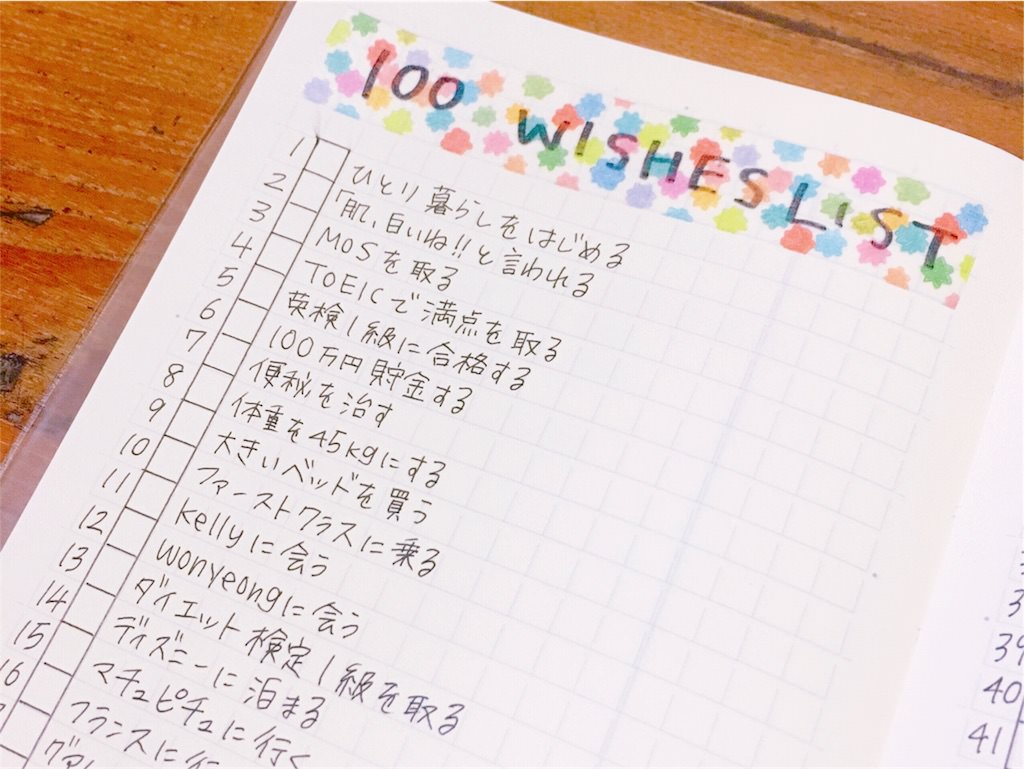 100 WISHES LIST
1 ひとり暮らしをはじめる
2 「肌、白いね!!と言われる
3 MOSを取る
4 TOEICで満点を取る
5 英検1級に合格する
6 100万円貯金する
7 便秘を治す
8 体重を45kgにする
9 大きいベッドを買う
10 ファーストクラスに乗る
11 Kellyに会う
12 wonyeongに会う
13 ダイエット検定1級を取る
14 ディズニーに泊まる
15 マチュピチュに行く
16 フランスに行
39
40
41